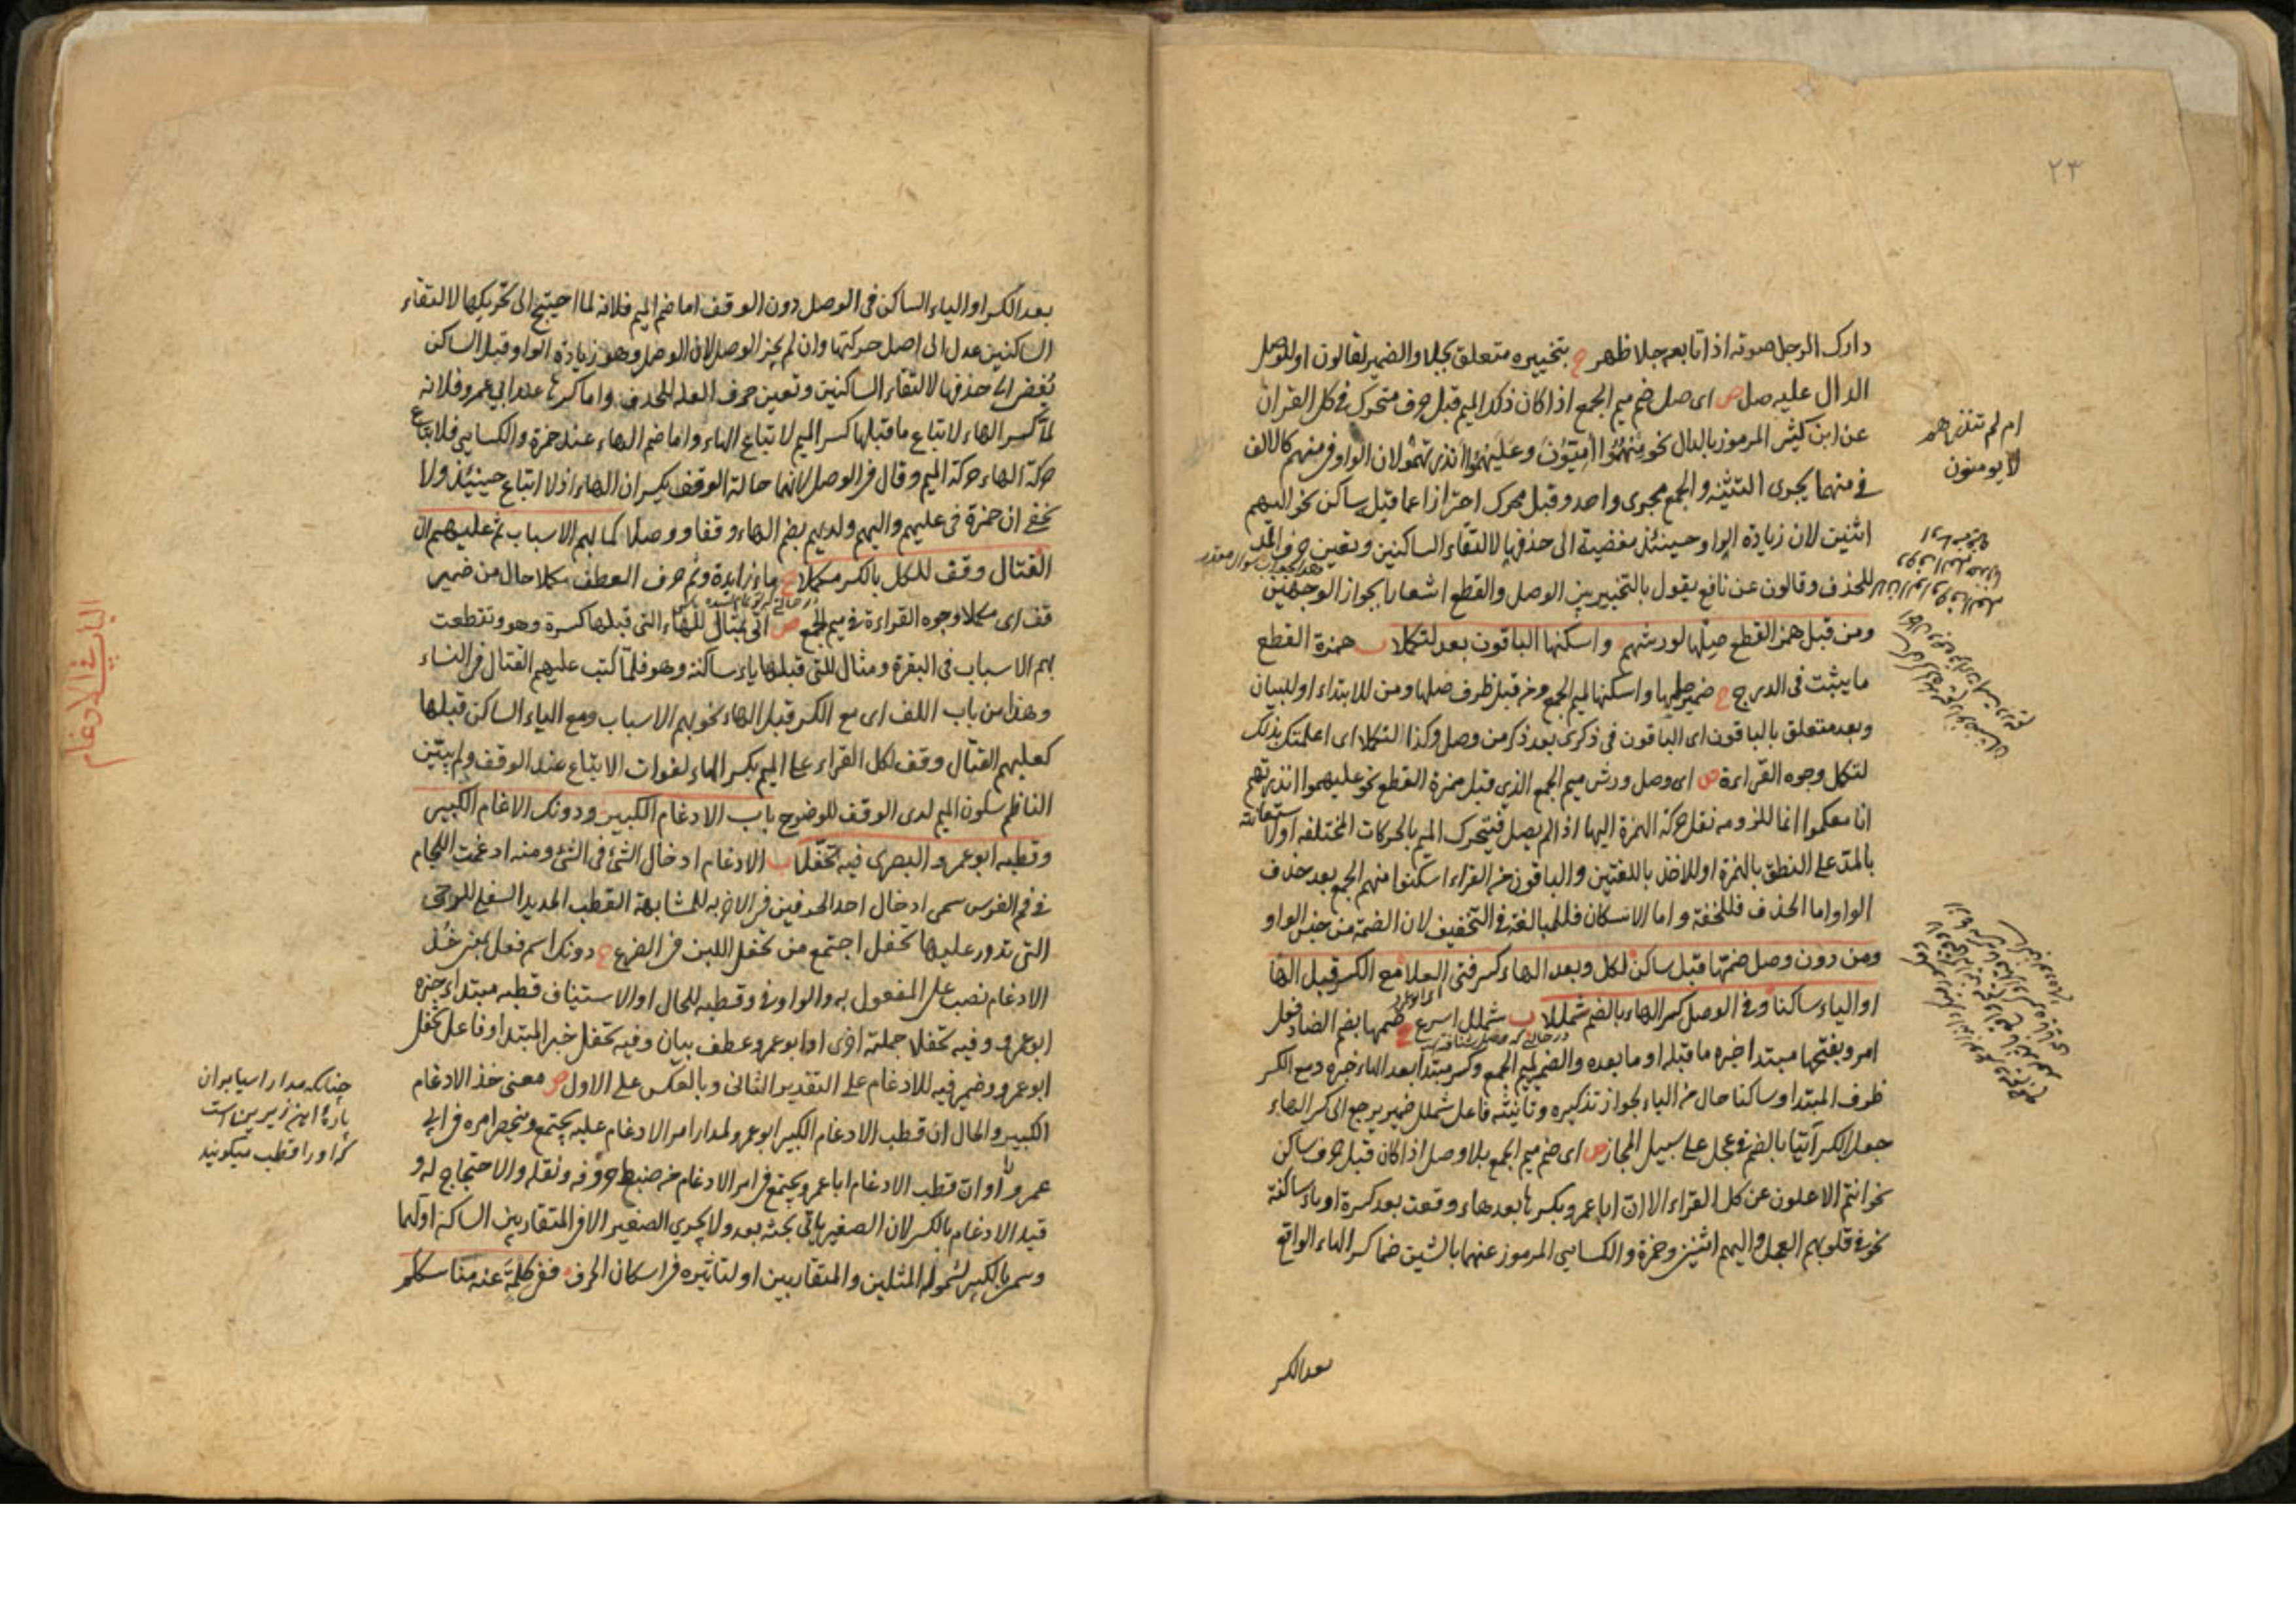 ٢٣
دارك الرجل صوته اذا تابعه جلا ظهر ح بتخييره متعلق بجلا والضمير لقالون او للوصل
الدال عليه صل ص اى صل ضم ميم الجمع اذا كان ذلك الميم قبل حرف متحرك فى كل القران
عن ابن كثير المرموز بالدال نحو منهموا اميون وعليهموا انذرتهموا لان الواو فى منهم كالالف
فى منهما يجرى التثنية والجمع مجرى واحد وقبل محرك احترازا عما قبل ساكن نحو اليهم
اثنين لان زيادة الواو حينئذ مفضية الى حذفها لالتقاء الساكنين وتعين حرف المد
للحذف وقالون عن نافع يقول بالتخيير بين الوصل والقطع اشعارا بجواز الوجهين
ومن قبل همز القطع صلها لورشهم واسكنها الباقون بعد لتكملا ب همزة القطع
ما يثبت فى الدرج ح ضمير صلها واسكنها لميم الجمع ومن قبل ظرف صلها ومن للابتداء او للبيان
وبعد متعلق بالباقون اى الباقون فى ذكرى بعد ذكر من وصل وكذا لتكملا اى اعلمتك بذلك
لتكمل وجوه القراءة ص اى وصل ورش ميم الجمع الذى قبل همزة القطع نحو عليهموا انذرتهم
انا معكموا انما للزومه نقل حركة الهمزة اليها اذا لم يصل فيتحرك الميم بالحركات المختلفة او لاستعانته
بالمد على النطق بالهمزة او للاخذ باللغتين والباقون من القراء اسكنوا منهم الجمع بعد حذف
الواو اما الحذف فللخفة واما الاسكان فللمبالغة فى التخفيف لان الضمة من جنس الواو
ومن دون وصل ضمها قبل ساكن لكل وبعد الهاء كسر فتى العلا مع الكسر قبل الها
او الياء ساكنا وفى الوصل كسر الهاء بالضم شمللا ب شملل اسرع ح ضمها بضم الضاد فعل
امر وبفتحها مبتدا خبره ما قبله او ما بعده والضمير لميم الجمع وكسر مبتدا بعد الهاء خبره ومع الكسر
ظرف المبتدا وساكنا حال من الياء لجواز تذكيره وتانيثه فاعل شملل ضمير يرجع الى كسر الهاء
جعل الكسر آتيا بالضم فى عجل على سبيل المجاز ص اى ضم ميم الجمع بلا وصل اذا كان قبل حرف ساكن
نحو انتم الاعلون عن كل القراء الا ان ابا عمرو يكسرها بعد هاء وقعت بعد كسرة او ياء ساكنة
نحو فى قلوبهم العجل واليهم اثنين وحمزة والكسايى المرموز عنهما بالشين ضما كسر الهاء الواقع
بعد الكسر
ام لم تنذرهم
لا يومنون
بعد الكسر او الياء الساكن فى الوصل دون الوقف اما ضم الميم فلانه لما احتيج الى تحريكها لالتقاء
الساكنين عدل الى اصل حركتها وان لم يجز الوصل لان الوصل وهو زيادة الواو قبل الساكن
يفضى الى حذفها لالتقاء الساكنين وتعين حرف العلة للحذف واما كسرها عند ابى عمرو فلانه
لما كسر الهاء لاتباع ما قبلها كسر الميم لاتباع الهاء واما ضم الهاء عند حمزة والكسايى فلاتباع
حركة الهاء حركة الميم وقال فى الوصل لانهما حالة الوقف يكسران الهاء اذ لا اتباع حينئذ ولا
يخفى ان حمزة فى عليهم واليهم ولديهم بضم الهاء وقفا ووصلا كما بهم الاسباب ثم عليهم ال
القتال وقف للكل بالكسر مكملا ح ما زايدة وثم حرف العطف مكملا حال من ضمير
قف اى مكملا وجوه القراءة فى ميم الجمع ص اتى بمثال للهاء التى قبلها كسرة وهو وتقطعت
بهم الاسباب فى البقرة ومثال للتى قبلها ياء ساكنة وهو فلما كتب عليهم القتال فى النساء
وهذا من باب اللف اى مع الكسر قبل الهاء نحو بهم الاسباب ومع الياء الساكن قبلها
كعليهم القتال وقف لكل القراء على الميم بكسر الهاء لفوات الاتباع عند الوقف ولم يبين
الناظم سكون الميم لدى الوقف للوضوح باب الادغام الكبير ودونك الادغام الكبير
وقطبه ابو عمرو البصرى فيه تحفلا ب الادغام ادخال الشئ فى الشئ ومنه ادغمت اللجام
فى فم الفرس سمى ادخال احد الحرفين فى الاخر به للمشابهة القطب الحديد السفلى للرحى
التى تدور عليها تحفل اجتمع من تحفل اللبن فى الضرع ح دونك اسم فعل بمعنى خذ
الادغام نصب على المفعول به والواو فى وقطبه للحال او الاستيناف قطبه مبتداء خبره
ابو عمرو وفيه تحفلا جملة اخرى او ابو عمرو عطف بيان وفيه تحفل خبر المبتدا وفاعل تحفل
ابو عمرو وضمير فيه للادغام على التقدير الثانى وبالعكس على الاول ص معنى خذ الادغام
الكبير والحال ان قطب الادغام الكبير ابو عمرو لمدار امر الادغام عليه يجتمع وينحصر امره فى ابى
عمرو او ان قطب الادغام ابا عمرو يجتمع فى امر الادغام من ضبط حروفه ونقله والاحتجاج له و
قيد الادغام بالكبير لان الصغير ياتى بحثه بعد ولا يجرى الصغير الا فى المتقاربين الساكن اولهما
وسمى بالكبير لشموله المثلين والمتقاربين او لتاثيره فى اسكان الحرف ففى كلمة عنه مناسككم
الباب فى الادغام
چنانكه مدار اسيا بران
پارۀ اهن زيرين است
كه او را قطب ميكويند